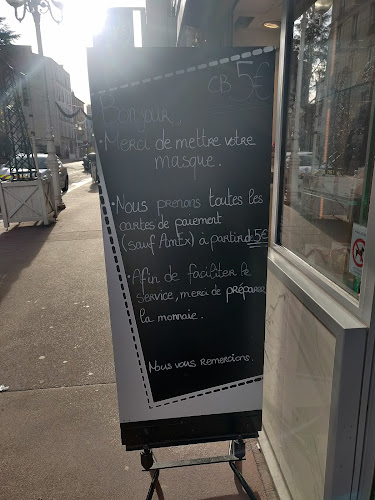 CB 5€
Bonjour,
• Merci de mettre votre
masque.
• Nous prenons toutes les
cartes de paiement
(sauf AmEx) à partir de 5€
• Afin de faciliter le
service, merci de préparer
la monnaie.
Nous vous remercions.